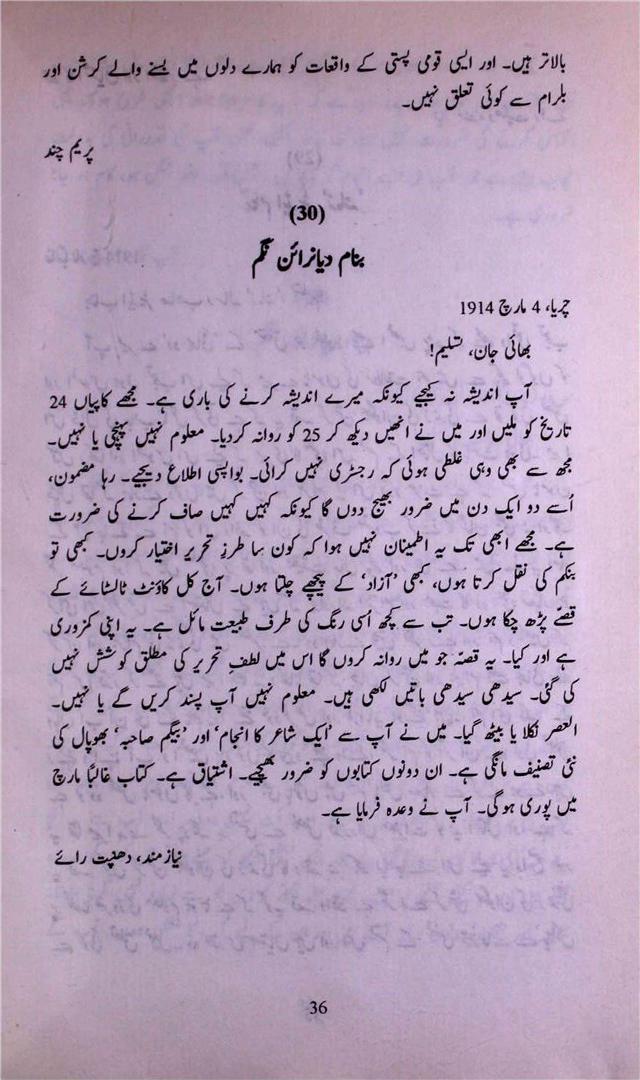 بالاتر ہیں۔ اور ایسی قومی پستی کے واقعات کو ہمارے دلوں میں بسنے والے کرشن اور
بلرام سے کوئی تعلق نہیں۔
پریم چند
(30)
بنام دیانرائن نگم
چرپا، 4 مارچ 1914
بھائی جان، تسلیم!
آپ اندیشہ نہ کیجیے کیونکہ میرے اندیشہ کرنے کی باری ہے۔ مجھے کاپیاں 24
تاریخ کو ملیں اور میں نے انھیں دیکھ کر 25 کو روانہ کردیا۔ معلوم نہیں پہنچی یا نہیں۔
مجھ سے بھی وہی غلطی ہوئی کہ رجسٹری نہیں کرائی۔ بواپسی اطلاع دیجیے۔ رہا مضمون،
اُسے دو ایک دن میں ضرور بھیج دوں گا کیونکہ کہیں کہیں صاف کرنے کی ضرورت
ہے۔ مجھے ابھی تک یہ اطمینان نہیں ہوا کہ کون سا طرزِ تحریر اختیار کروں۔ کبھی تو
بنکم کی نقل کرتا ہوں، کبھی ’آزاد‘ کے پیچھے چلتا ہوں۔ آج کل کاؤنٹ ٹالسٹائے کے
قصّے پڑھ چکا ہوں۔ تب سے کچھ اُسی رنگ کی طرف طبیعت مائل ہے۔ یہ اپنی کمزوری
ہے اور کیا۔ یہ قصّہ جو میں روانہ کروں گا اس میں لطفِ تحریر کی مطلق کوشش نہیں
کی گئی۔ سیدھی سیدھی باتیں لکھی ہیں۔ معلوم نہیں آپ پسند کریں گے یا نہیں۔
العصر نکلا یا بیٹھ گیا۔ میں نے آپ سے ’ایک شاعر کا انجام‘ اور ’بیگم صاحبہ‘ بھوپال کی
نئی تصنیف مانگی ہے۔ ان دونوں کتابوں کو ضرور بھیجیے۔ اشتیاق ہے۔ کتاب غالبًا مارچ
میں پوری ہوگی۔ آپ نے وعدہ فرمایا ہے۔
نیازمند، دھنپت رائے
36